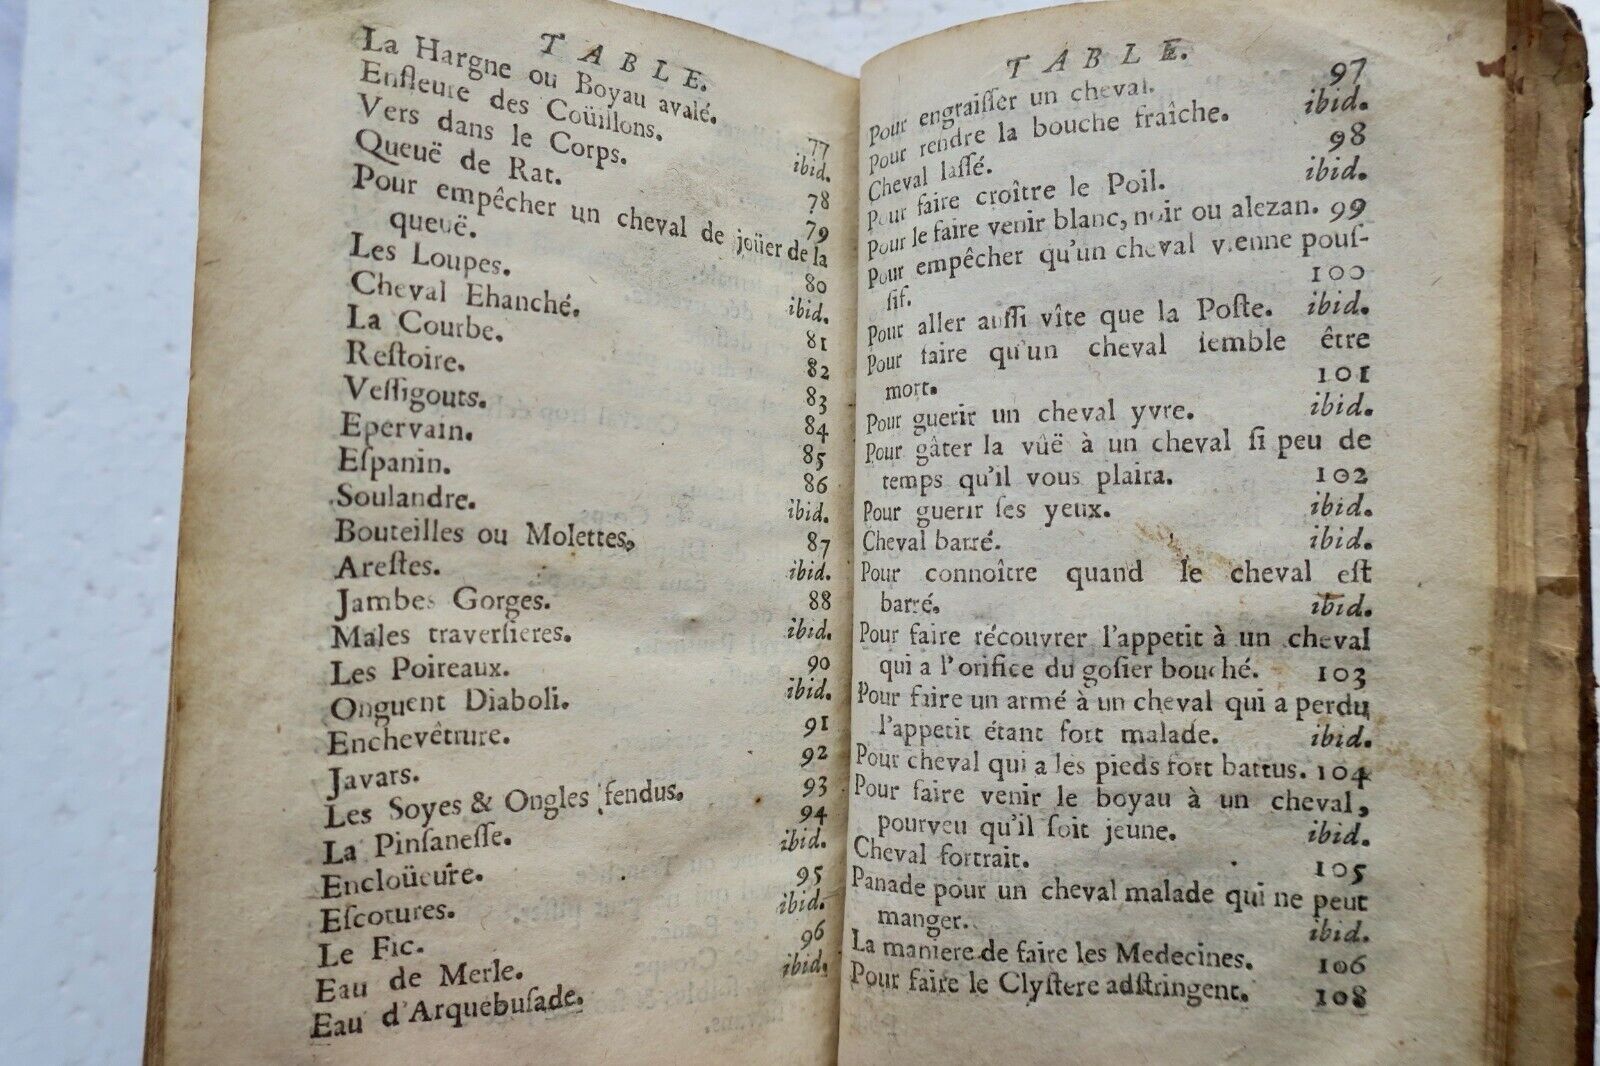 TABLE.
La Hargne ou Boyau avalé. 77
Enfleure des Coüillons. ibid.
Vers dans le Corps. 78
Queuë de Rat. 79
Pour empêcher un cheval de joüer de la
queuë. 80
Les Loupes. ibid.
Cheval Ehanché. 81
La Courbe. 82
Reſtoire. 83
Veſſigouts. 84
Epervain. 85
Eſpanin. 86
Soulandre. ibid.
Bouteilles ou Molettes, 87
Areſtes. ibid.
Jambes Gorges. 88
Males traverſieres. ibid.
Les Poireaux. 90
Onguent Diaboli. ibid.
Enchevêtrure. 91
Javars. 92
Les Soyes & Ongles fendus. 93
La Pinſaneſſe. 94
Encloüeure. ibid.
Eſcotures. 95
Le Fic. ibid.
Eau de Merle. 96
Eau d'Arquebuſade. ibid.
TABLE.
Pour engraiſſer un cheval. 97
Pour rendre la bouche fraîche. ibid.
Cheval laſſé. 98
Pour faire croître le Poil. ibid.
Pour le faire venir blanc, noir ou alezan. 99
Pour empêcher qu'un cheval vienne pouſ-
ſif. 100
Pour aller auſſi vîte que la Poſte. ibid.
Pour faire qu'un cheval ſemble être
mort. 101
Pour guerir un cheval yvre. ibid.
Pour gâter la vûë à un cheval ſi peu de
temps qu'il vous plaira. 102
Pour guerir ſes yeux. ibid.
Cheval barré. ibid.
Pour connoître quand le cheval eſt
barré. ibid.
Pour faire récouvrer l'appetit à un cheval
qui a l'orifice du goſier bouché. 103
Pour faire un armé à un cheval qui a perdu
l'appetit étant fort malade. ibid.
Pour cheval qui a les pieds fort battus. 104
Pour faire venir le boyau à un cheval,
pourveu qu'il ſoit jeune. ibid.
Cheval fortrait. 105
Panade pour un cheval malade qui ne peut
manger. ibid.
La maniere de faire les Medecines. 106
Pour faire le Clyſtere adſtringent. 108